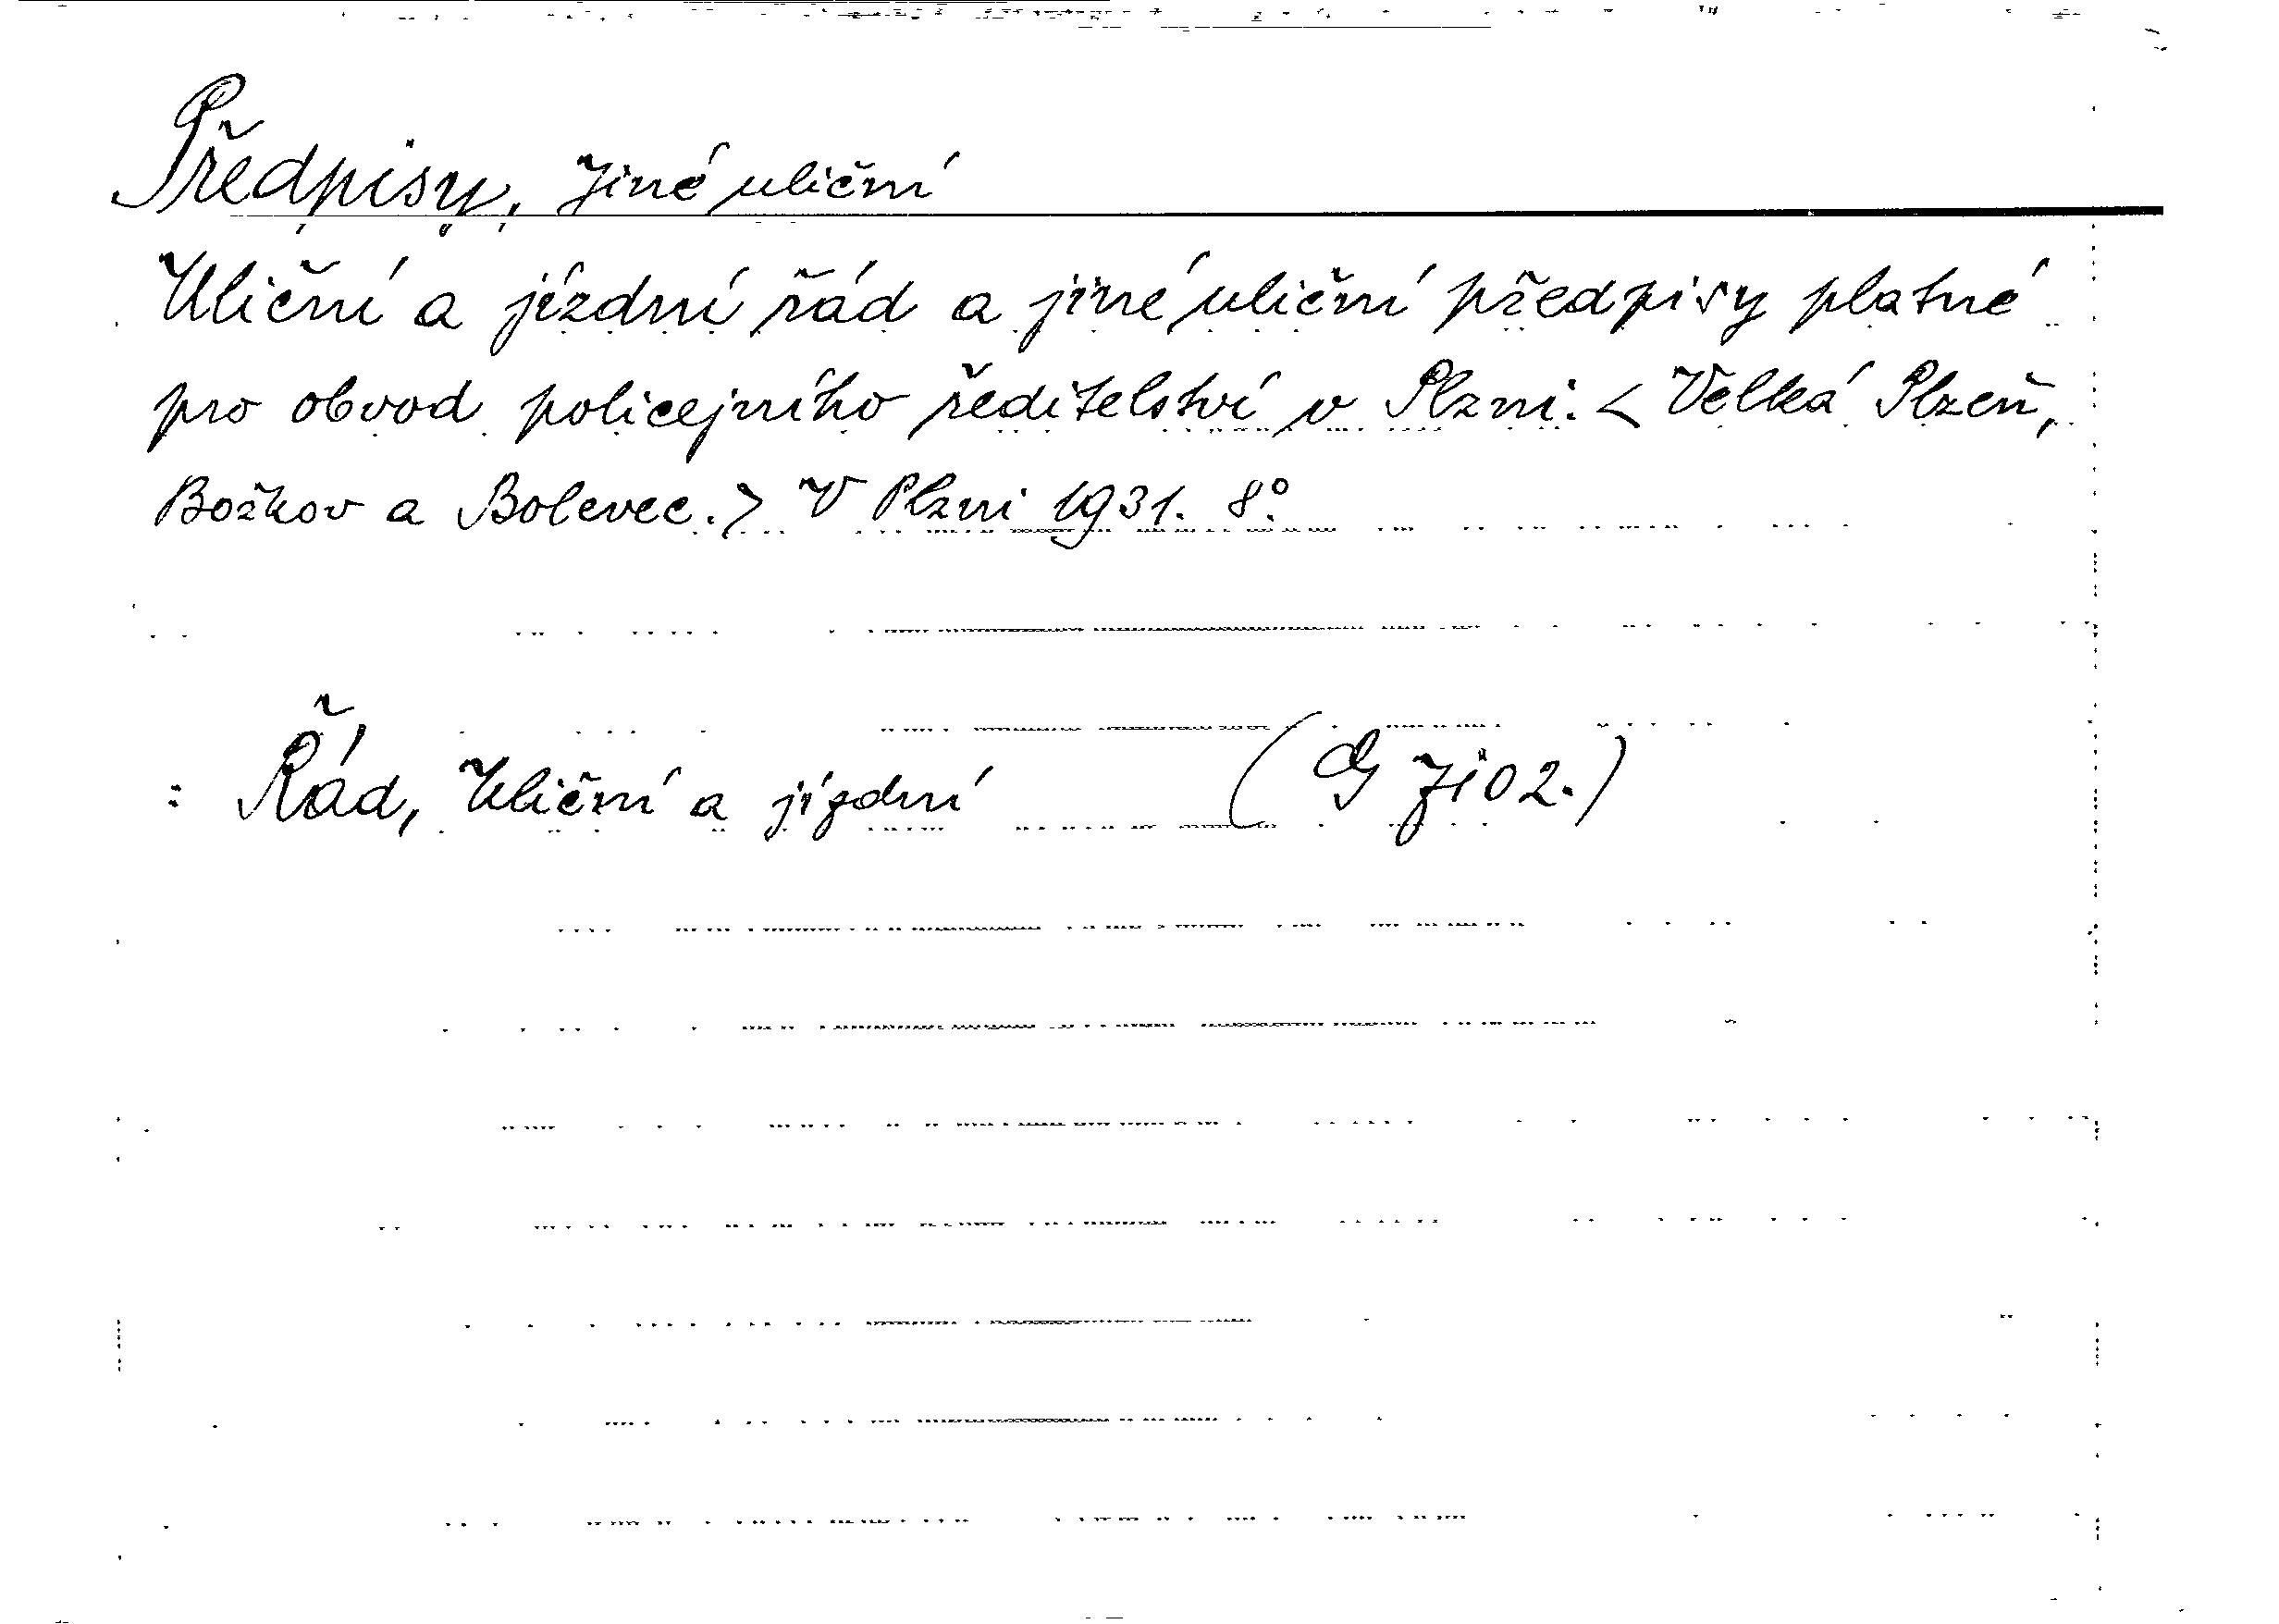 Předpisy, Jiné uliční
Uliční a jízdní řád a jiné uliční předpisy platné
pro obvod policejního ředitelství v Plzni. < Velká Plzeň,
Božkov a Bolevec. > V Plzni 1931. 8°.
: Řád, Uliční a jízdní (G J i 02.)